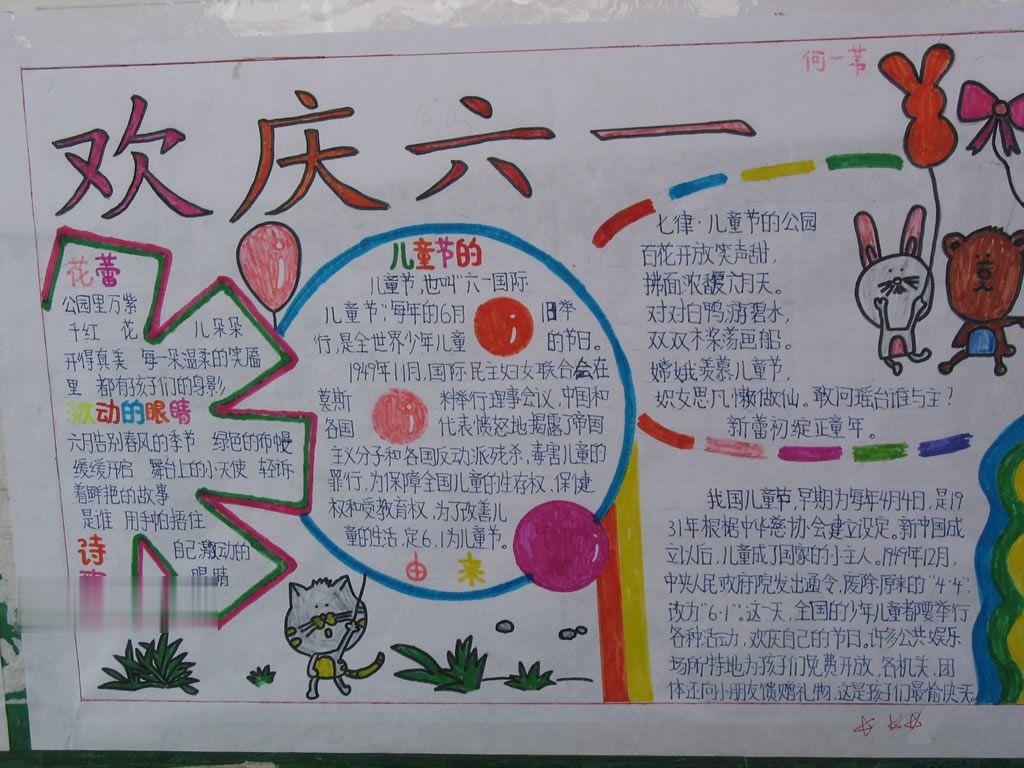 何一苇
欢庆六一
花蕾
公园里万紫
千红 花 儿朵朵
开得真美 每一朵温柔的笑靥
里 都有孩子们的身影
激动的眼睛
六月告别春风的季节 绿色的布幔
缓缓开启 舞台上的小天使 轻诉
着鲜艳的故事
是谁 用手帕捂住
自己激动的
眼睛
诗
儿童节的
儿童节,也叫"六一国际
儿童节",每年的6月 1日举
行,是全世界少年儿童 的节日。
1949年11月,国际民主妇女联合会在
莫斯 科举行理事会议,中国和
各国 代表愤怒地揭露了帝国
主义分子和各国反动派残杀,毒害儿童的
罪行,为保障全国儿童的生存权、保健
权和受教育权,为了改善儿
童的生活,定6.1为儿童节。
由 来
七律·儿童节的公园
百花开放笑声甜,
拂面浓馥六月天。
对对白鸭游碧水,
双双木桨荡画船。
嫦娥羡慕儿童节,
织女思凡懒做仙。敢问瑶台谁与主?
新蕾初绽正童年。
我国儿童节,早期为每年4月4日,是19
31年根据中华慈协会建立设定。新中国成
立以后,儿童成了国家的小主人。1949年12月,
中央人民政府院发出通令,废除原来的"4·4"
改为"6·1"。这一天,全国的少年儿童都要举行
各种活动,欢庆自己的节日。许多公共娱乐
场所特地为孩子们免费开放,各机关、团
体还向小朋友馈赠礼物,这是孩子们最愉快天。